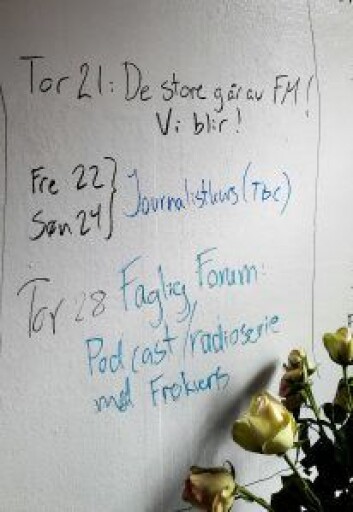 Tor 21: De store går av FM!
Vi blir!
Fre 22 }
Søn 24 } Journalistkurs (TBC)
Tor 28 Faglig Forum:
Podcast/radioserie
med Frokurs